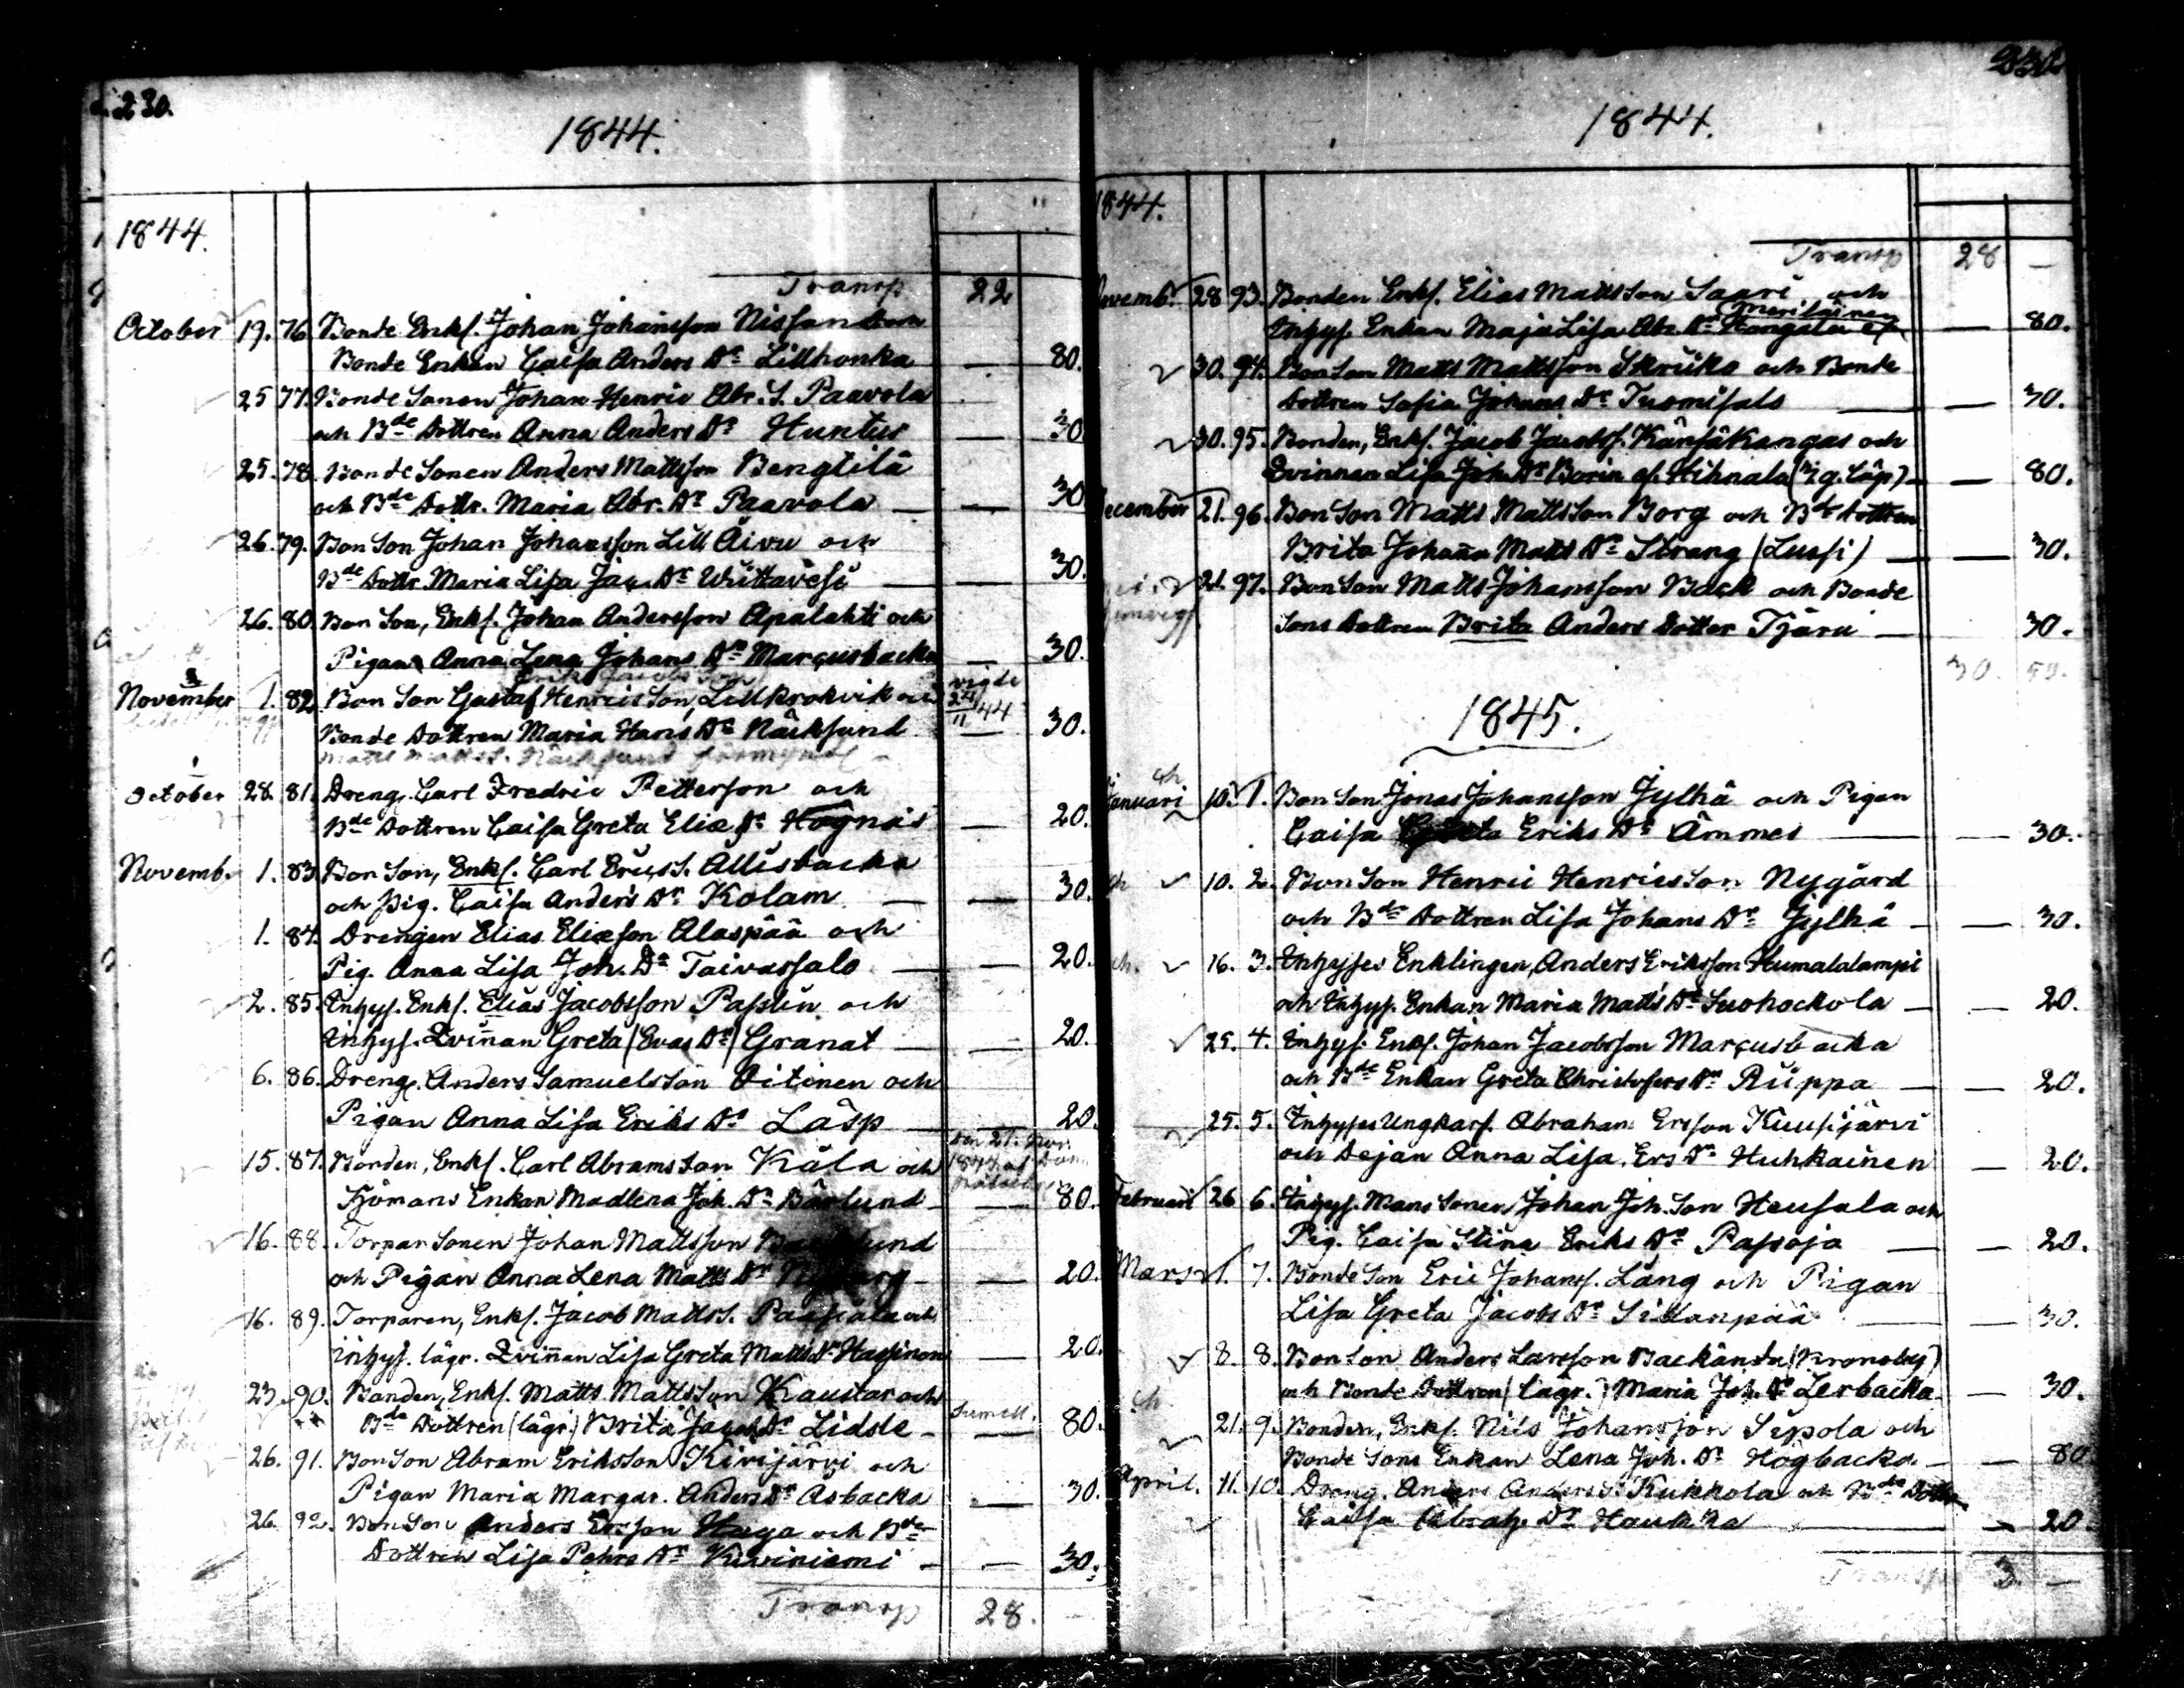 230.
1844.
1844.
Transp 22
October 19. 76 Bonde Enkl. Johan Johansson Nissan
Bonde Enkan Caisa Anders Dr Lillhonka — 80.
25 77. Bonde Sonen Johan Henric Abr. S. Paavola
och Bde Dottren Anna Anders Dr Huntus — 30
25. 78. Bonde Sonen Anders Mattsson Bengtilä
och Bde Dottr. Maria Abr. Dr Paavola — 30
26. 79. Bon Son Johan Johansson Lill Äivu och
Bde Dottr. Maria Lisa Jac. Dr Wiittavesi — 30.
26. 80. Bon Son, Enkl. Johan Andersson Apalahti och
Pigan Anna Lena Johans Dr Marcusbacka — 30.
Erik Jacobs Son
November 1. 82. Bon Son Gustaf Henricsson, Lillkrokvik och vigde 24/11 44
Bonde Dottren Maria Hans Dr Näcksund — 30.
Matts Matts S. Näcksund
October 28. 81. Dreng. Carl Fredric Petterson och
Bde Dottren Caisa Greta Eliæ Dr Högnäs — 20.
Novemb. 1. 83. Bon Son, Enkl. Carl Erics S. Allisbacka
och Pig. Caisa Anders Dr Kolam — 30.
1. 84. Drengen Elias Eliæson Alaspää och
Pig. Anna Lisa Joh. Dr Taivassalo — 20.
2. 85. Inhys. Enkl. Elias Jacobsson Passlin och
Inhys. Qvinnan Greta (Evas Dr) Granat — 20.
6. 86. Dreng. Anders Samuelsson Oitinen och
Pigan Anna Lisa Eriks Dr Läsp — 20.
15. 87. Bonden, Enkl. Carl Abramsson Kåla och den 21. Nov. 1844 af
Sjömans Enkan Madlena Joh. Dr Bärlund — 80.
16. 88. Torpar Sonen Johan Mattsson
och Pigan Anna Lena Matts Dr — 20.
16. 89. Torparen, Enkl. Jacob Matts S. och
inhys. lägr. Qvinnan Lisa Greta Matts Dr Hassinen — 20.
23. 90. Bonden, Enkl. Matts Mattsson Kaustar och
Bde Dottren (lägr.) Brita Jacobs Dr Lidsle — 80.
26. 91. Bon Son Abram Eriksson Kivijärvi och
Pigan Maria Margar. Anders Dr Åsbacka — 30.
26. 92. Bon Son Anders Ersson Haga och Bde
Dottren Lisa Pehrs Dr Kiviniemi — 30.
Transp 28.
1844.
1844.
Transp 28 —
Novemb. 28 93. Bonden Enkl. Elias Mattsson Saari och
Meriläinen
Inhys. Enkan Maja Lisa Abr. Dr Kangala — 80.
30. 94. Bon Son Matts Mattsson Skriiko och Bonde
Dottren Sofia Johans Dr Tuomisalo — 30.
30. 95. Bonden, Enkl. Jacob Jacobss. Känsäkangas och
Qvinnan Lisa Joh. Dr Borin el. Hihnala — 80.
December 21. 96. Bon Son Matts Mattsson Borg och Bde Dottren
Brita Johanna Matts Dr Strang (Lussi) — 30.
21. 97. Bon Son Matts Johansson Back och Bonde
Sons Dottren Brita Anders Dotter Tjäru — 30.
30. 50.
1845.
Januari 10. 1. Bon Son Jonas Johansson Jylhä och Pigan
Caisa Greta Eriks Dr Ämmes — 30.
10. 2. Bon Son Henric Henricsson Nygård
och Bde Dottren Lisa Johans Dr Jylhä — 30.
16. 3. Inhyses Enklingen, Anders Eriksson Humalalampi
och Inhys. Enkan Maria Matts Dr Suohockola — 20.
25. 4. Inhys. Enkl. Johan Jacobsson Marcusbacka
och Bde Enkan Greta Christofers Dr Riippa — 20.
25. 5. Inhyses Ungkarl. Abraham Ersson Kuusijärvi
och Dejan Anna Lisa Ers Dr Huhkainen — 20.
Februari 26 6. Inhys. Mans Sonen, Johan Joh. Son Heusala och
Pig. Caisa Stina Eriks Dr Passoja — 20.
Mars 1. 7. Bonde Son Eric Johanss. Lång och Pigan
Lisa Greta Jacobs Dr Sillanpää — 30.
8. 8. Bon Son Anders Larsson Backända (Kronoby)
och Bonde Dottren (lägr.) Maria Joh. Dr Zerbacka — 30.
21. 9. Bonden, Enkl. Nils Johansson Sepola och
Bonde Sons Enkan Lena Joh. Dr Högbacka — 80
April. 11. 10. Dreng. Anders Anders S. Kukkola och Bde Dottren
Caisa Abrah. Dr Haukka — 20.
Transp 3. —